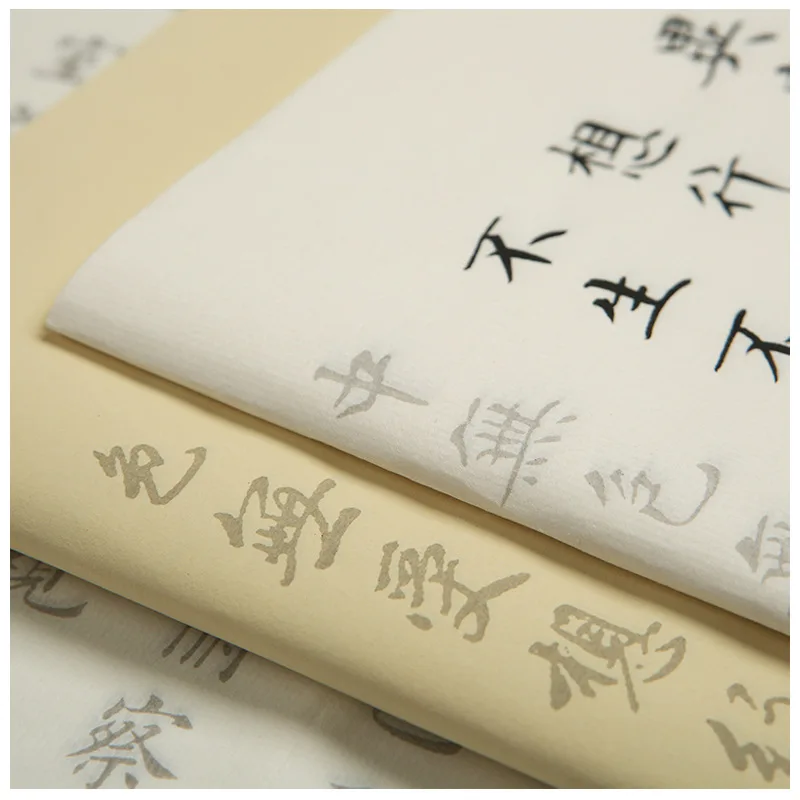 異
想行
不生不
中無色無
色無受想
察